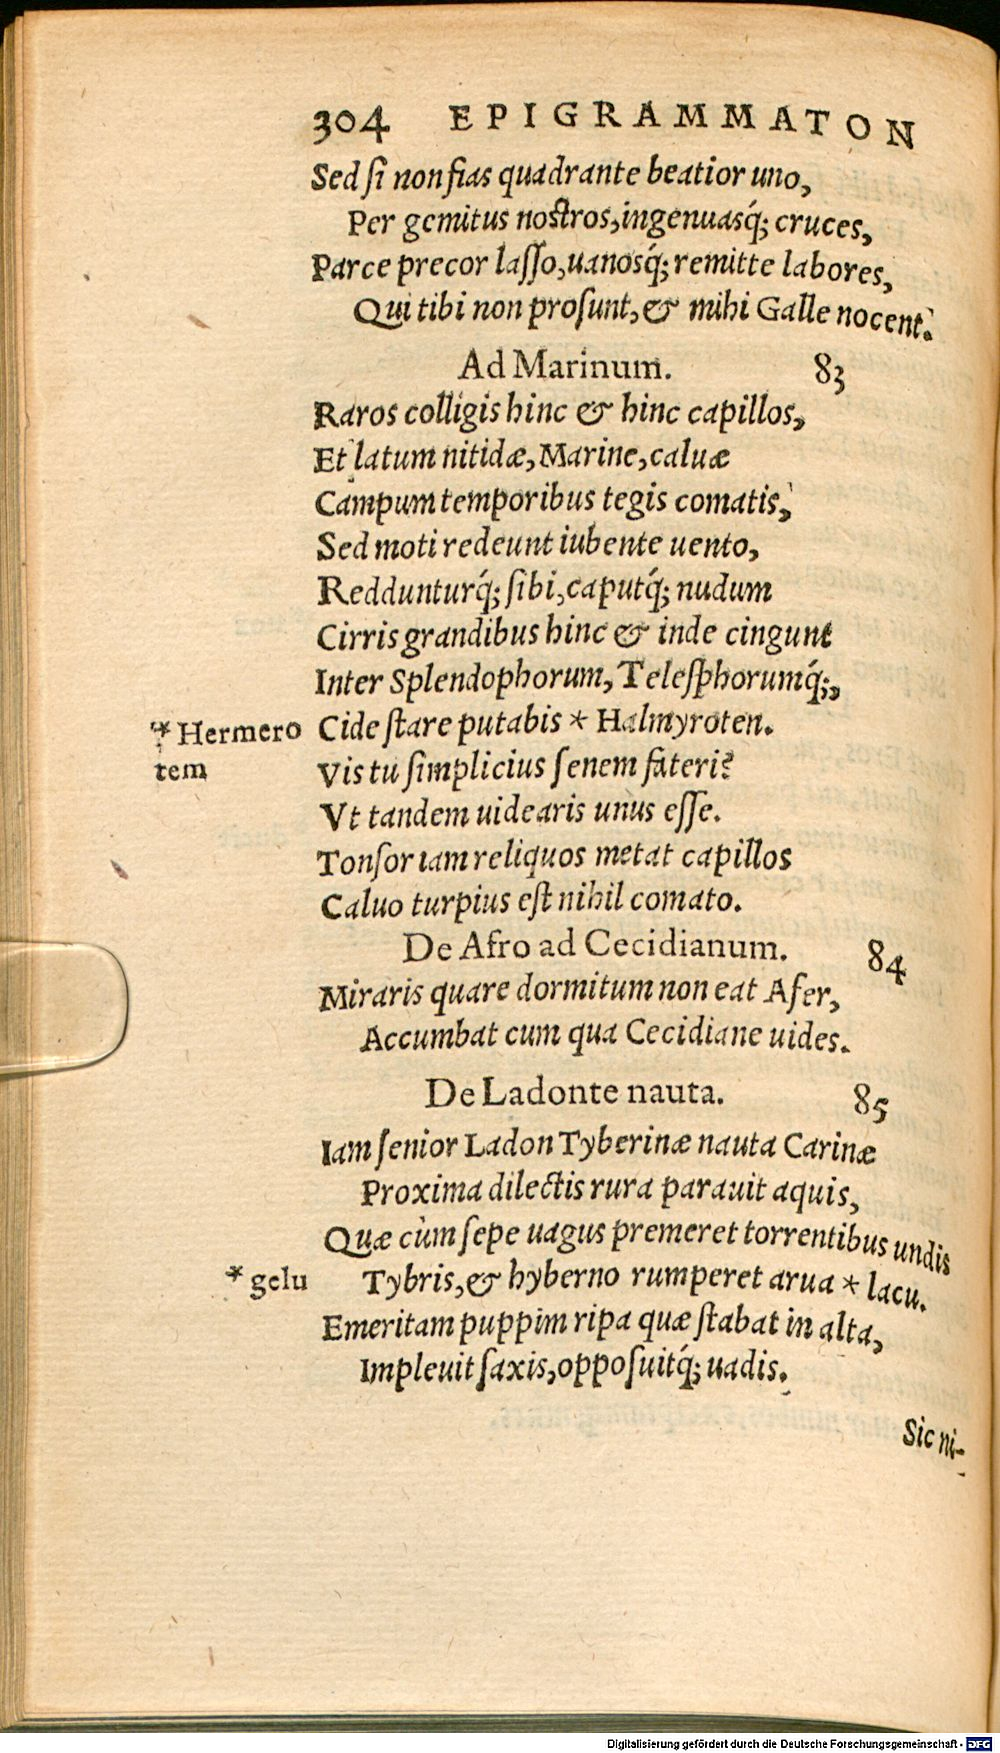 304 EPIGRAMMATON
Sed ſi non fias quadrante beatior uno,
Per gemitus noſtros, ingenuasq́; cruces,
Parce precor laſſo, uanosq́; remitte labores,
Qui tibi non proſunt, & mihi Galle nocent.
Ad Marinum. 83
Raros colligis hinc & hinc capillos,
Et latum nitidæ, Marine, caluæ
Campum temporibus tegis comatis,
Sed moti redeunt iubente uento,
Reddunturq́; ſibi, caputq́; nudum
Cirris grandibus hinc & inde cingunt
Inter Splendophorum, Teleſphorumq́;,
* Hermero Cide ſtare putabis * Halmyroten.
tem Vis tu ſimplicius ſenem fateri?
Vt tandem uidearis unus eſſe.
Tonſor iam reliquos metat capillos
Caluo turpius eſt nihil comato.
De Afro ad Cecidianum. 84
Miraris quare dormitum non eat Afer,
Accumbat cum qua Cecidiane uides.
De Ladonte nauta. 85
Iam ſenior Ladon Tyberinæ nauta Carinæ
Proxima dilectis rura parauit aquis,
Quæ cùm ſepe uagus premeret torrentibus undis
* gelu Tybris, & hyberno rumperet arua * lacu.
Emeritam puppim ripa quæ ſtabat in alta,
Impleuit ſaxis, oppoſuitq́; uadis.
Sic ni-
Digitalisierung gefördert durch die Deutsche Forschungsgemeinschaft - DFG